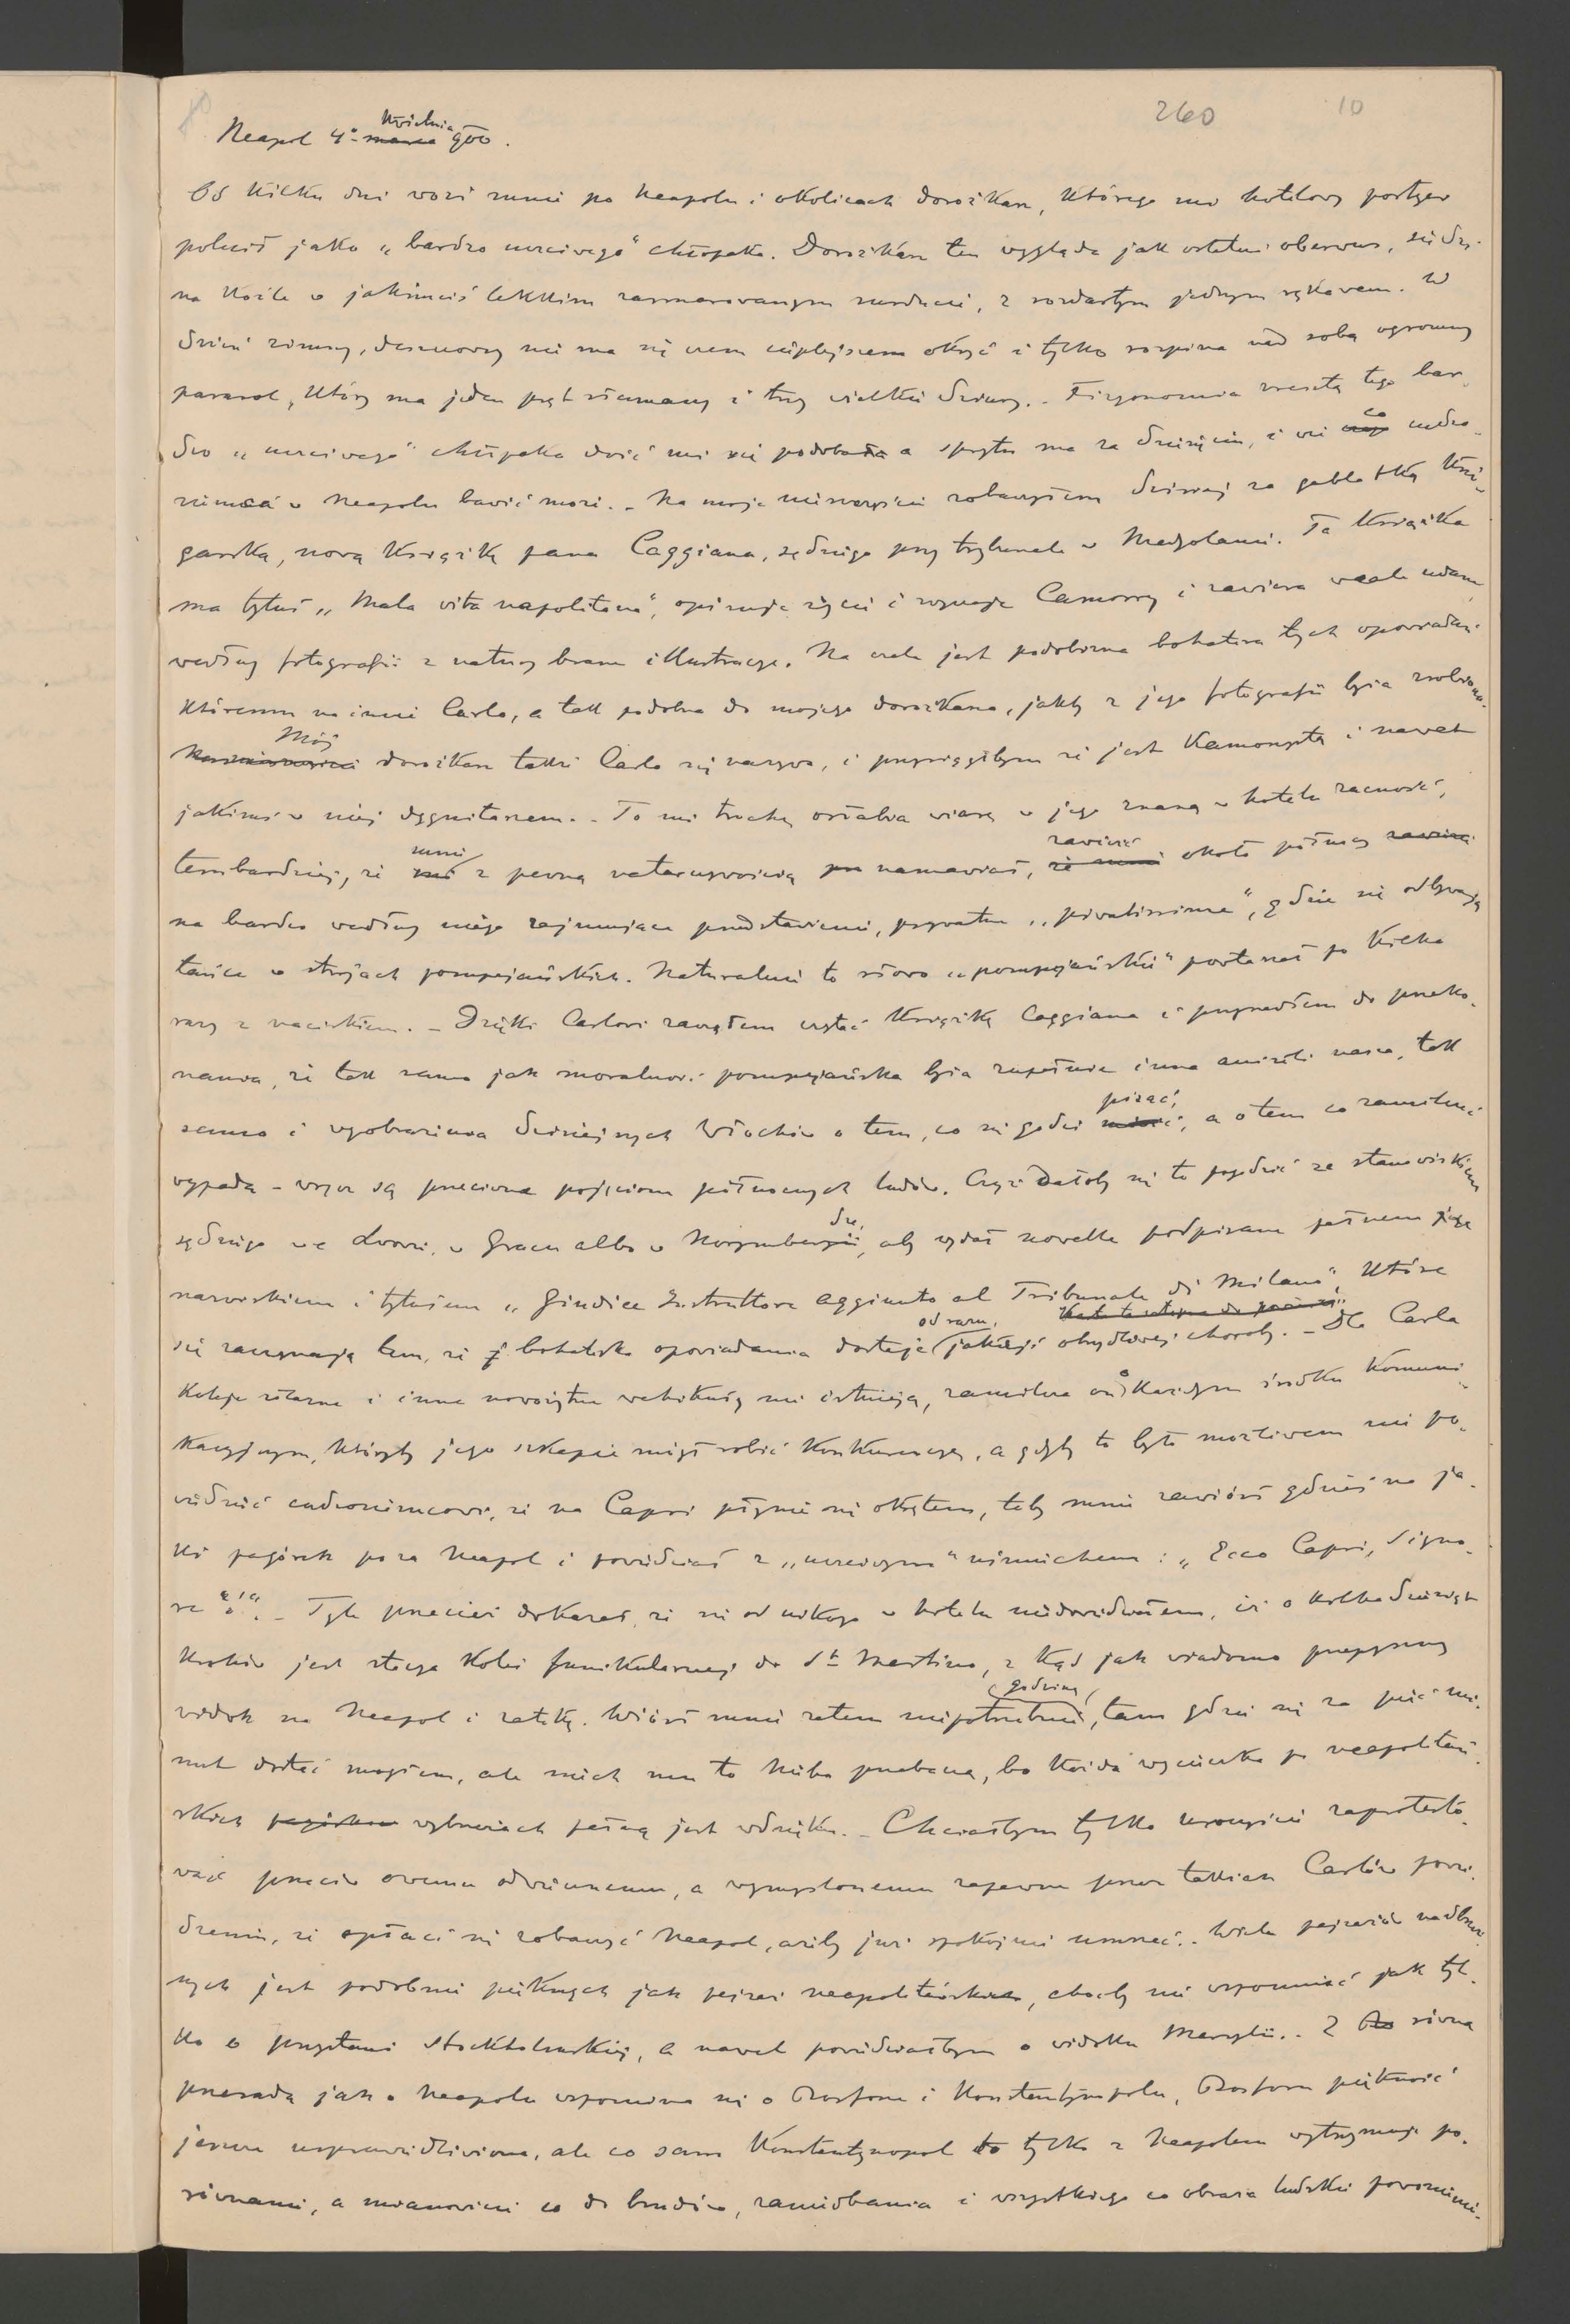 260 10
Neapol 4º marca Kwietnia 900.
Od kilku dni wozi mnie po Neapolu i okolicach dorożkarz, którego mi hotelowy portyer
polecił jako „bardzo uczciwego" chłopaka. Dorożkarz ten wygląda jak ostatni oberwus, siedzi
na koźle w jakimciś lekkim zasmarowanym surducie, z rozdartym jednym rękawem. W
dzień zimny, deszczowy nie ma się czem cieplejszem okryć i tylko rozpina nad sobą ogromny
parasol, który ma jeden pręt złamany i trzy wielkie dziury. - Fizyonomia zresztą tego bar-
dzo „uczciwego" chłopaka dość mi się podobała a sprytu ma za dziesięciu, i wie co cudzo-
ziemca w Neapolu bawić może. - Na moje nieszczęście zobaczyłem dzisiaj za gablotką księ-
garską, nową książkę pana Caggiana, sędziego przy trybunale w Medyolanie. Ta książka
ma tytuł „Mala vita napolitana", opisuje życie i zwyczaje Camorry i zawiera wcale udane
według fotografii z natury brane illustracye. Na czele jest podobizna bohatera tych opowiadań
któremu na imię Carlo, a tak podobna do mojego dorożkarza, jakby z jego fotografii była zrobiona.
Na nieszczęście Mój dorożkarz także Carlo się nazywa, i przysiągłbym że jest Kamorystą i nawet
jakimś w niej dygnitarzem. - To mi trochę osłabia wiarę w jego znaną w hotelu zacność,
tembardziej, że mnie z pewną natarczywością namawiał, że mnie zawieść około północy zawiezie
na bardzo według niego zajmujące przedstawienie, prywatne „privatissime", gdzie się odbywają
tańce w strojach pompejańskich. Naturalnie to słowo „pompejańskie" powtarzał po kilka
razy z naciskiem. - Dzięki Carlowi zacząłem czytać książkę Caggiana i przyszedłem do przeko-
nania, że tak samo jak moralność pompejańska była zupełnie inna aniżeli nasza, tak
samo i wyobrażenia dzisiejszych Włochów o tem, co się godzi mówić pisać, a o tem co zamilczeć
wypada - wręcz są przeciwne pojęciom północnych ludów. Czyż dałoby się to pogodzić ze stanowiskiem
sędziego we Lwowie, w Gracu albo w Norymberdze, aby wydał nowelle podpisane pełnem jego
nazwiskiem i tytułem „Giudice Instruttore aggiunto al Tribunale di Milano", które
się zaczynają tem, że bohaterka opowiadania dostaje od razu jakiejś obrzydliwej choroby. - Dla Carla
koleje żelazne i inne nowożytne wehikuły nie istnieją, zamilcza on o każdym środku komuni-
kacyjnym, któryby jego szkapie mógł robić konkurencyę, a gdyby to było możliwem nie po-
wiedzieć cudzoziemcowi, że na Capri płynie się okrętem, toby mnie zawiózł gdzieś na ja-
ki pagórek poza Neapol i powiedział z „uczciwym" uśmiechem: „Ecco Capri, Signo-
re"!". - Tyle przecież dokazał, że się od nikogo w hotelu nie dowiedziałem, iż o kilkadziesiąt
kroków jest stacya kolei funikularnej do St Martino, z kąd jak wiadomo przepyszny
widok na Neapol i zatokę. Wiózł mnie zatem niepotrzebnie godzinę, tam gdzie się za pięć mi-
nut dostać mogłem, ale niech mu to niebo przebaczy, bo każda wycieczka po neapolitań-
skich pagórkach wybrzeżach pełną jest wdzięku. - Chciałbym tylko uroczyście zaprotesto-
wać przeciw owemu odwiecznemu, a wymyślonemu zapewne przez takich Carlów powie-
dzeniu, że opłaci się zobaczyć Neapol, ażeby już spokojnie umrzeć. - Wiele pejzażów nadbrzeż-
nych jest podobnie pięknych jak pejzaż neapolitański, choćby nie wspomnieć jak tyl-
ko o przystani stockholmskiej, a nawet powiedziałbym o widoku Marsylii. - Z równą
przesadą jak o Neapolu wspomina się o Bosforze i Konstantynopolu, Bosforu piękność
jeszcze usprawiedliwiona, ale co sam Konstantynopol to tylko z Neapolem wytrzymuje po-
równanie, a mianowicie co do brudów, zaniedbania i wszystkiego co obraża ludzkie powonienie.